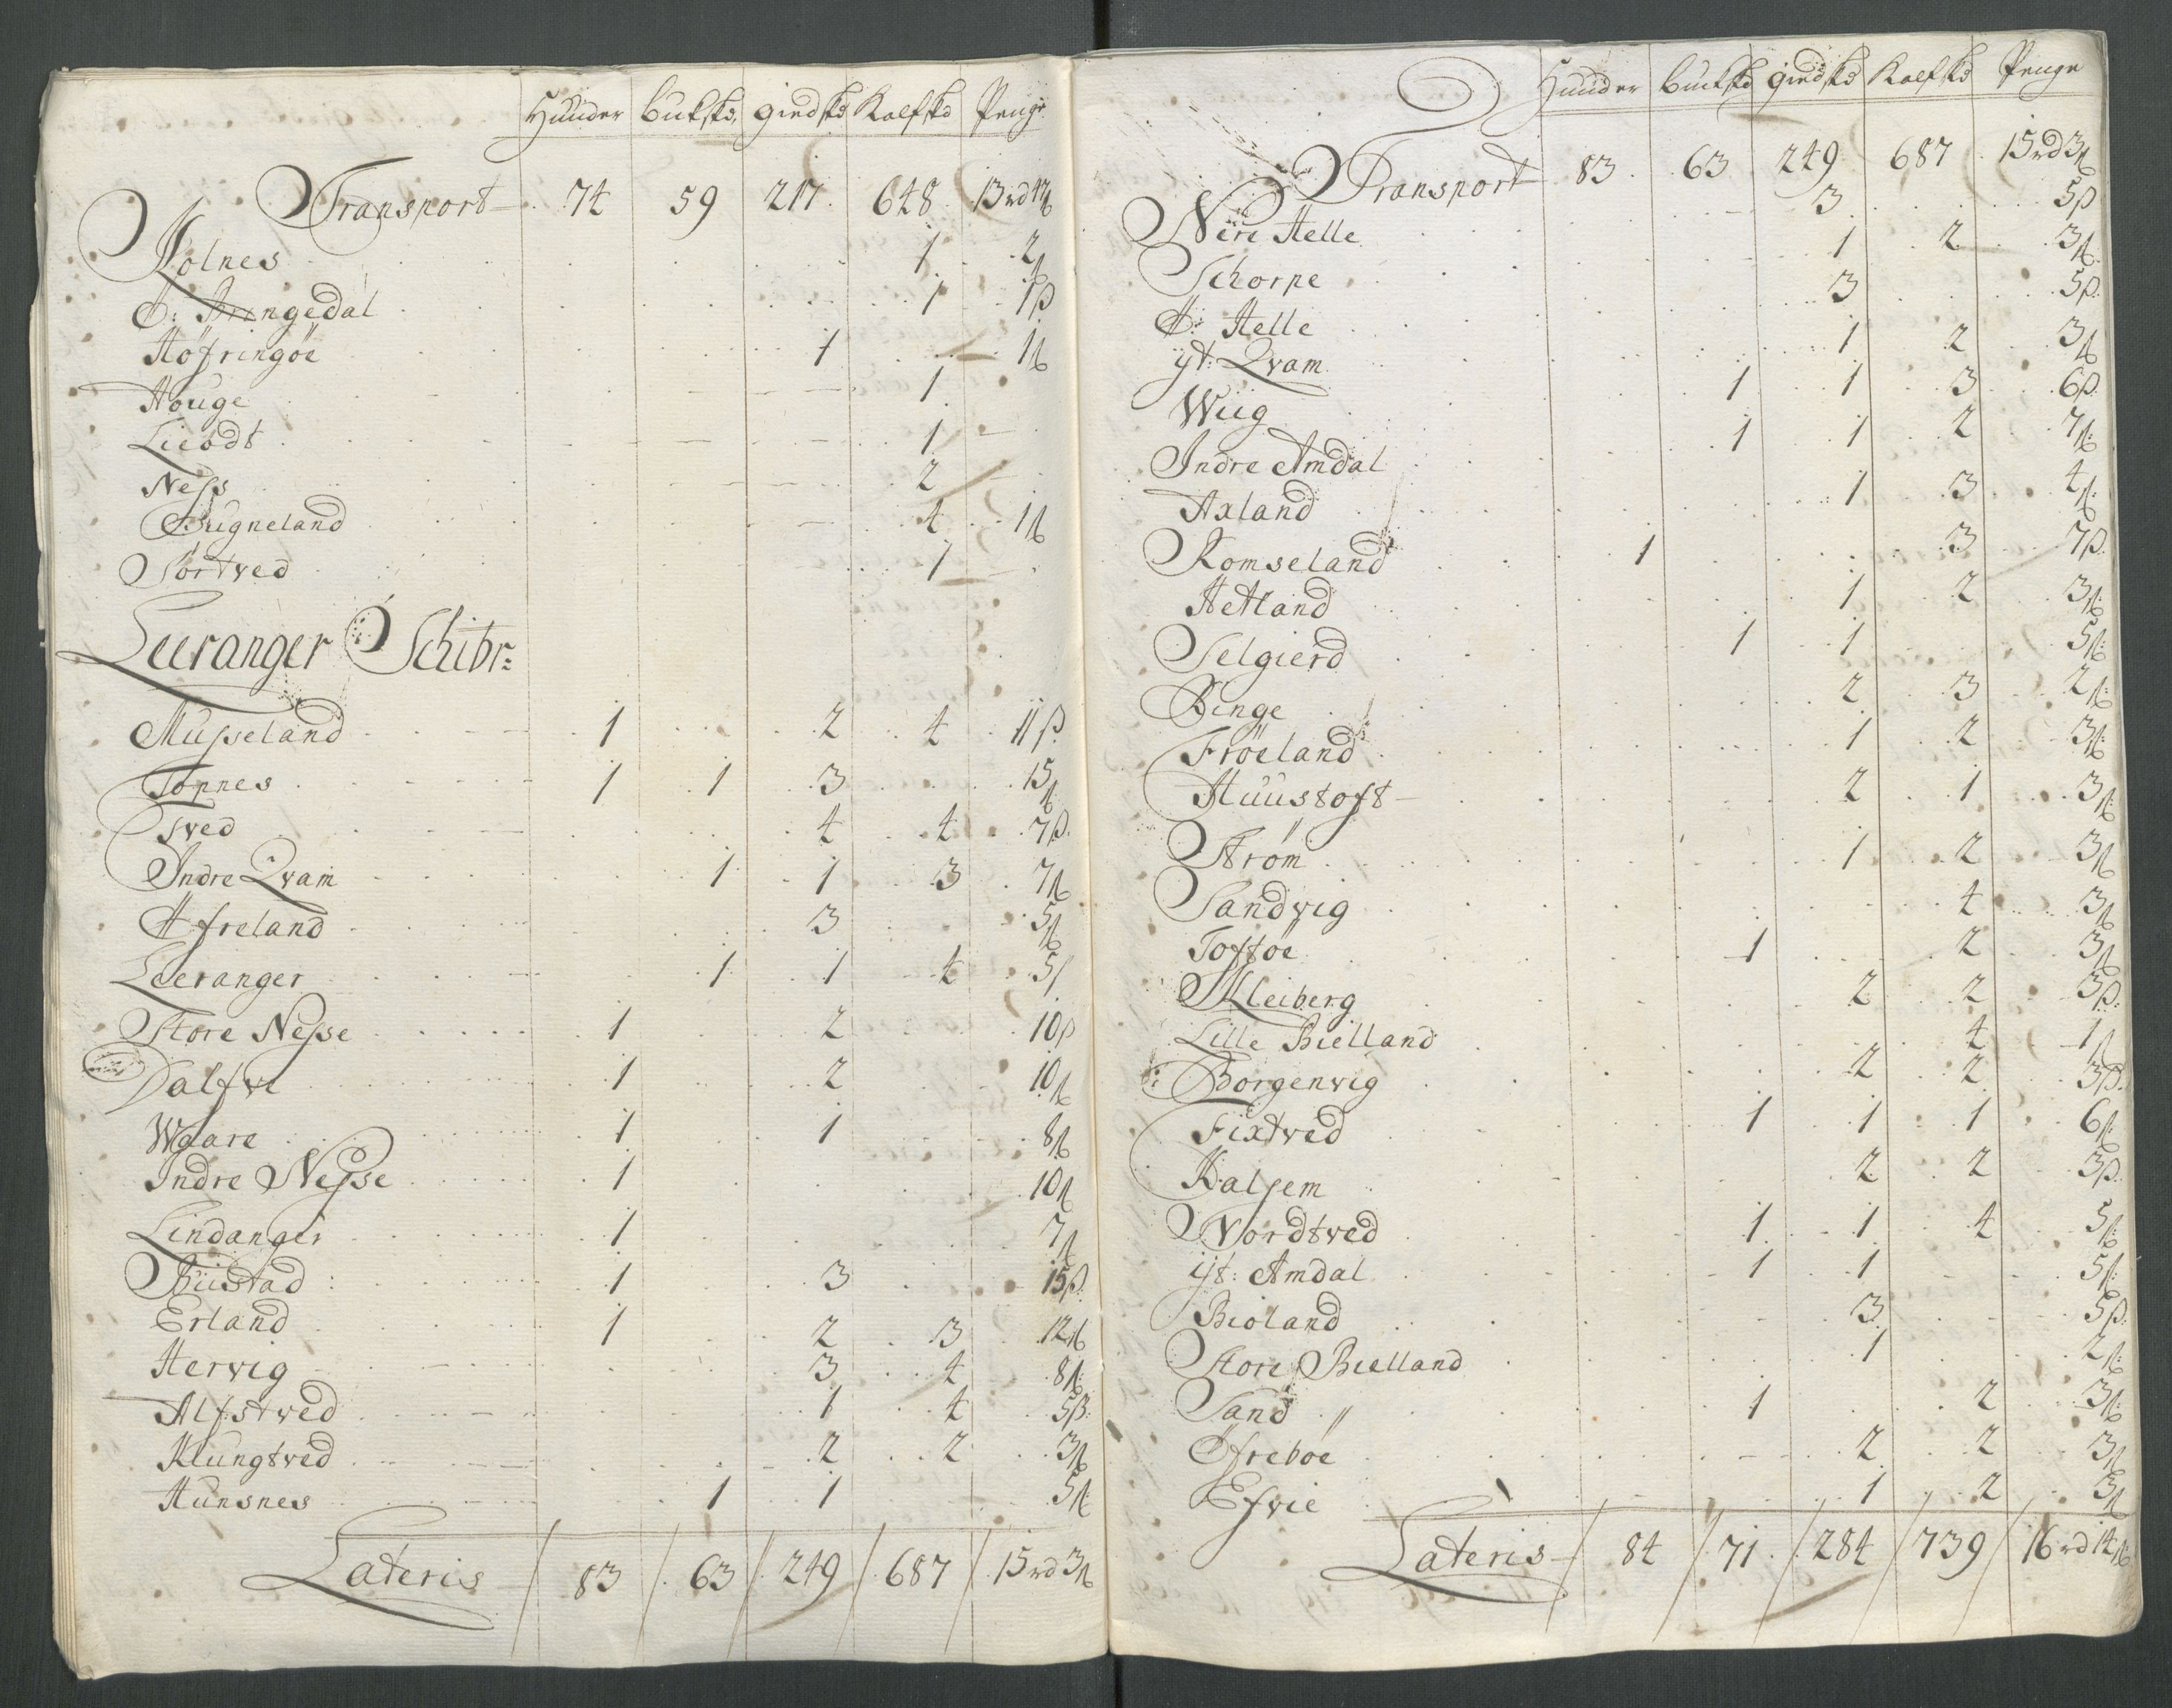 Huuder Bukskd. giedskd Kalfskd Penge
Transport 74 59 217 648 13rd 17ß
Jolnes 1 2ß
Ö: Arengedal 1 1ß
Höfringöe 1 1ß
Houge 1
Liebdt 1
Ness 2
Bugneland 4 1ß
Sörtved 1
Leeranger Schibr:
Musseland 1 2 4 11ß
Tönnes 1 1 3 15ß
Tved 4 4 7ß
Indre Qvam 1 1 3 7ß
Öfreland 3 5ß
Leeranger 1 1 4 5ß
Store Nesse 1 2 10ß
Dalfve 1 2 10ß
Waare 1 1 8ß
Indre Nesse 1 10ß
Lindanger 1 7ß
Buestad 1 3 15ß
Erland 1 2 3 12ß
Hervig 3 4 8ß
Alfstved 1 4 5ß
Klungtved 2 2 3ß
Hunsnes 1 1 5ß
Lateris 83 63 249 687 15rd 3ß
Huuder Bukskd giedskd Kalfskd Penge
Transport 83 63 249 687 15rd 3ß
Nere Helle 3 5ß
Schorpe 1 2 3ß
Ö: Helle 3 5ß
yt: Qvam 1 2 3ß
Wiig 1 1 3 6ß
Indre Amdal 1 1 2 7ß
Axland 1 3 4ß
Romseland 1 3 7ß
Hetland 1 2 3ß
Selgierd 1 1 5ß
Binge 2 3 2ß
Fröeland 1 2 3ß
Huustoft 2 1 3ß
Ström 1 2 3ß
Sandvig 4 3ß
Toftöe 1 2 3ß
Kleiberg 2 2 3ß
Lille Bielland 4 1ß
Borgenvig 2 2 3ß
Fixtved 1 1 1 6ß
Halsem 2 2 3ß
Nordtved 1 1 4 5ß
yt: Amdal 1 1 5ß
Bioland 3 5ß
Store Bielland 1 2ß
Sand 1 2 3ß
Öfreböe 2 2 3ß
Efvie 1 2 3ß
Lateris 84 71 284 739 16rd 14ß